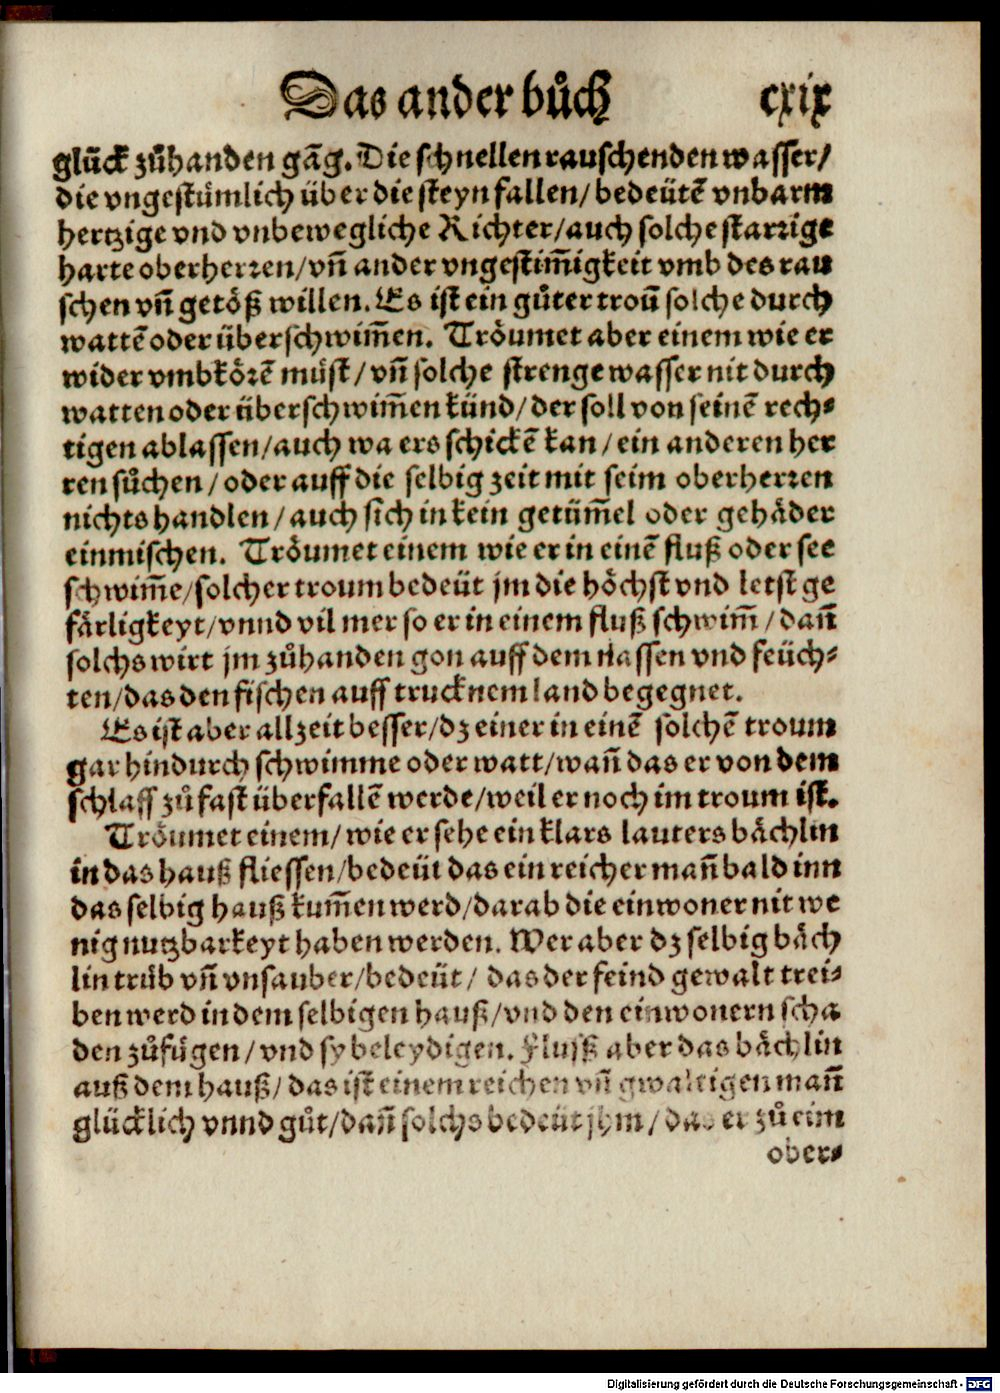 Das ander bůch cxix
glück zůhanden gāg. Die schnellen rauschenden wasser/
die vngestümlich über die steyn fallen/ bedeütē vnbarm
hertzige vnd vnbewegliche Richter/ auch solche starrige
harte oberherren/ vñ ander vngestim̄igkeit vmb des rau
schen vñ getöß willen. Es ist ein gůter troū solche durch
wattē oder überschwim̄en. Tröumet aber einem wie er
wider vmbkörē müst/ vñ solche strenge wasser nit durch
watten oder überschwim̄en künd/ der soll von seinē rech⸗
tigen ablassen/ auch wa ers schickē kan/ ein anderen her
ren sůchen/ oder auff die selbig zeit mit seim oberherren
nichts handlen/ auch sich in kein getüm̄el oder gehäder
einmischen. Tröumet einem wie er in einē fluß oder see
schwim̄e/ solcher troum bedeüt jm die höchst vnd letst ge
färligkeyt/ vnnd vil mer so er in einem fluß schwim̄/ dañ
solchs wirt jm zůhanden gon auff dem nassen vnd feüch⸗
ten/ das den fischen auff trucknem land begegnet.
Es ist aber allzeit besser/ dz einer in einē solchē troum
gar hindurch schwimme oder watt/ wañ das er von dem
schlaff zů fast überfallē werde/ weil er noch im troum ist.
Tröumet einem/ wie er sehe ein klars lauters bächlin
in das hauß fliessen/ bedeüt das ein reicher mañ bald inn
das selbig hauß kum̄en werd/ darab die einwoner nit we
nig nutzbarkeyt haben werden. Wer aber dz selbig bäch
lin trüb vñ vnsauber/ bedeüt/ das der feind gewalt trei⸗
ben werd in dem selbigen hauß/ vnd den einwonern scha
den zůfügen/ vnd sy beleydigen. Flusß aber das bächlin
auß dem hauß/ das ist einem reichen vñ gwaltigen mañ
glücklich vnnd gůt/ dañ solchs bedeüt jhm/ das er zů eim
ober⸗
Digitalisierung gefördert durch die Deutsche Forschungsgemeinschaft - DFG